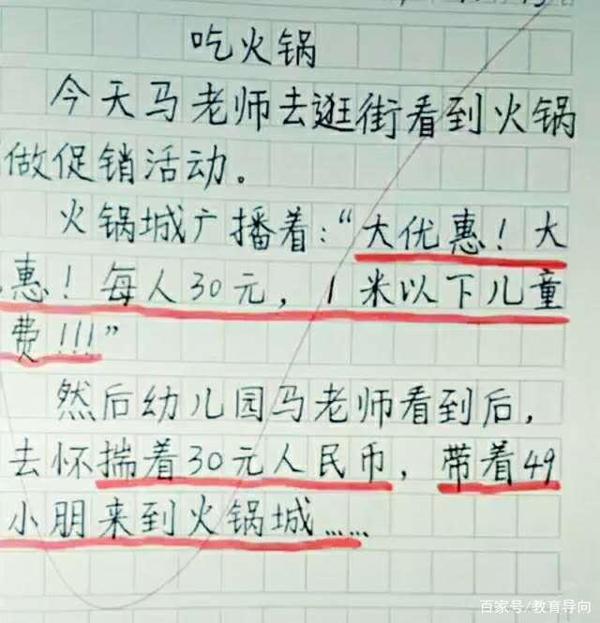 吃火锅
今天马老师去逛街看到火锅
做促销活动。
火锅城广播着:“大优惠！大
惠！每人30元，1米以下儿童
费!!!”
然后幼儿园马老师看到后，
去怀揣着30元人民币，带着49
小朋来到火锅城……
百家号/教育导向